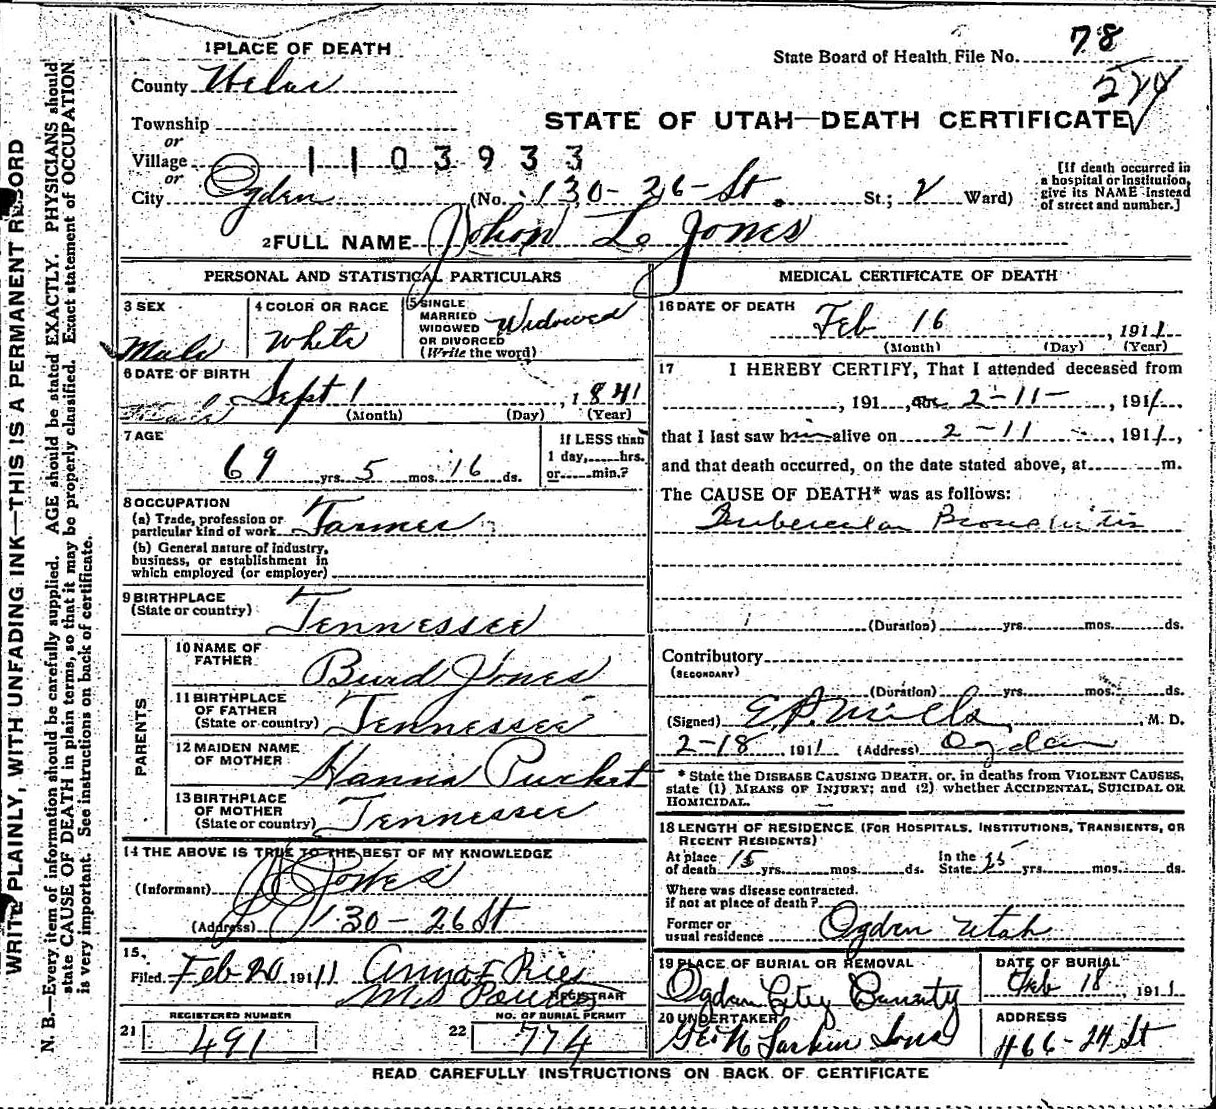 1 PLACE OF DEATH
State Board of Health File No. 78
County Weber
524
STATE OF UTAH—DEATH CERTIFICATE
Township
or
Village
or
1103933
City Ogden (No. 130-26-St. St.; 2 Ward)
[If death occurred in
a hospital or institution,
give its NAME instead
of street and number.]
2 FULL NAME John L Jones
PERSONAL AND STATISTICAL PARTICULARS
3 SEX
Male
4 COLOR OR RACE
White
5 SINGLE
MARRIED
WIDOWED
OR DIVORCED
(Write the word)
Widowed
6 DATE OF BIRTH
Sept 1, 1841
(Month) (Day) (Year)
7 AGE
69 yrs. 5 mos. 16 ds.
If LESS than
1 day,.....hrs.
or.....min.?
8 OCCUPATION
(a) Trade, profession or
particular kind of work Farmer
(b) General nature of industry,
business, or establishment in
which employed (or employer)
9 BIRTHPLACE
(State or country)
Tennessee
PARENTS
10 NAME OF
FATHER
Burd Jones
11 BIRTHPLACE
OF FATHER
(State or country)
Tennessee
12 MAIDEN NAME
OF MOTHER
Hanna Purket
13 BIRTHPLACE
OF MOTHER
(State or country)
Tennessee
14 THE ABOVE IS TRUE TO THE BEST OF MY KNOWLEDGE
(Informant) Jones
(Address) 130-26 St
15.
Filed Feb 20, 1911 Anna F Ries
REGISTRAR
REGISTERED NUMBER
21 491
NO. OF BURIAL PERMIT
22 774
MEDICAL CERTIFICATE OF DEATH
16 DATE OF DEATH
Feb 16, 1911
(Month) (Day) (Year)
17 I HEREBY CERTIFY, That I attended deceased from
, 191 , on 2-11-, 1911.,
that I last saw him alive on 2-11, 1911.,
and that death occurred, on the date stated above, at m.
The CAUSE OF DEATH* was as follows:
Tubercular Bronchitis
(Duration) yrs. mos. ds.
Contributory
(SECONDARY)
(Duration) yrs. mos. ds.
(Signed) E.P. Mills, M. D.
2-18, 1911 (Address) Ogden
* State the DISEASE CAUSING DEATH, or, in deaths from VIOLENT CAUSES,
state (1) MEANS OF INJURY; and (2) whether ACCIDENTAL, SUICIDAL OR
HOMICIDAL.
18 LENGTH OF RESIDENCE (FOR HOSPITALS, INSTITUTIONS, TRANSIENTS, OR
RECENT RESIDENTS)
At place
of death 15 yrs. mos. ds.
In the
State 25 yrs. mos. ds.
Where was disease contracted,
if not at place of death?
Former or
usual residence Ogden Utah
19 PLACE OF BURIAL OR REMOVAL
Ogden City
DATE OF BURIAL
Feb 18, 1911
20 UNDERTAKER
Geo W Larkin Sons
ADDRESS
466-24 St
READ CAREFULLY INSTRUCTIONS ON BACK OF CERTIFICATE
WRITE PLAINLY, WITH UNFADING INK—THIS IS A PERMANENT RECORD
N. B.—Every item of information should be carefully supplied. AGE should be stated EXACTLY. PHYSICIANS should
state CAUSE OF DEATH in plain terms, so that it may be properly classified. Exact statement of OCCUPATION
is very important. See instructions on back of certificate.